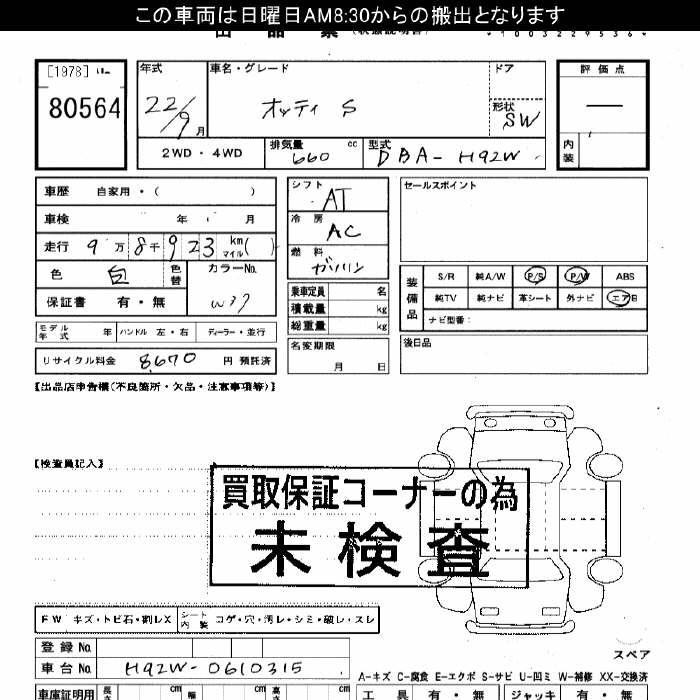 この車両は日曜日AM8:30からの搬出となります
出品票(状態説明書)
*1003229536*
[1978]
80564
年式
22/9月
車名・グレード
オッティ S
ドア
形状
SW
評価点
—
内装
2WD・4WD
排気量 660 cc
型式 DBA-H92W
車歴 自家用・( )
車検 年 月
走行 9万8千923 km マイル( )
色 白 色替
カラーNo. W37
保証書 有・無
モデル年式 年 ハンドル 左・右 ディーラー・並行
リサイクル料金 8,670 円 預託済
シフト AT
冷房 AC
燃料 ガソリン
乗車定員 名
積載量 kg
総重量 kg
名変期限
月 日
セールスポイント
装備品
S/R 純A/W P/S P/W ABS
純TV 純ナビ 革シート 外ナビ エアB
ナビ型番:
後日品
【出品店申告欄(不良箇所・欠品・注意事項等)】
【検査員記入】
買取保証コーナーの為
未検査
FW キズ・トビ石・割レX シート内装 コゲ・穴・汚レ・シミ・破レ・スレ
登録No.
車台No. H92W-0610315
スペア
A-キズ C-腐食 E-エクボ S-サビ U-凹ミ W-補修 XX-交換済
車庫証明用 長さ cm 幅 cm 高さ cm
工具 有・無 ジャッキ 有・無